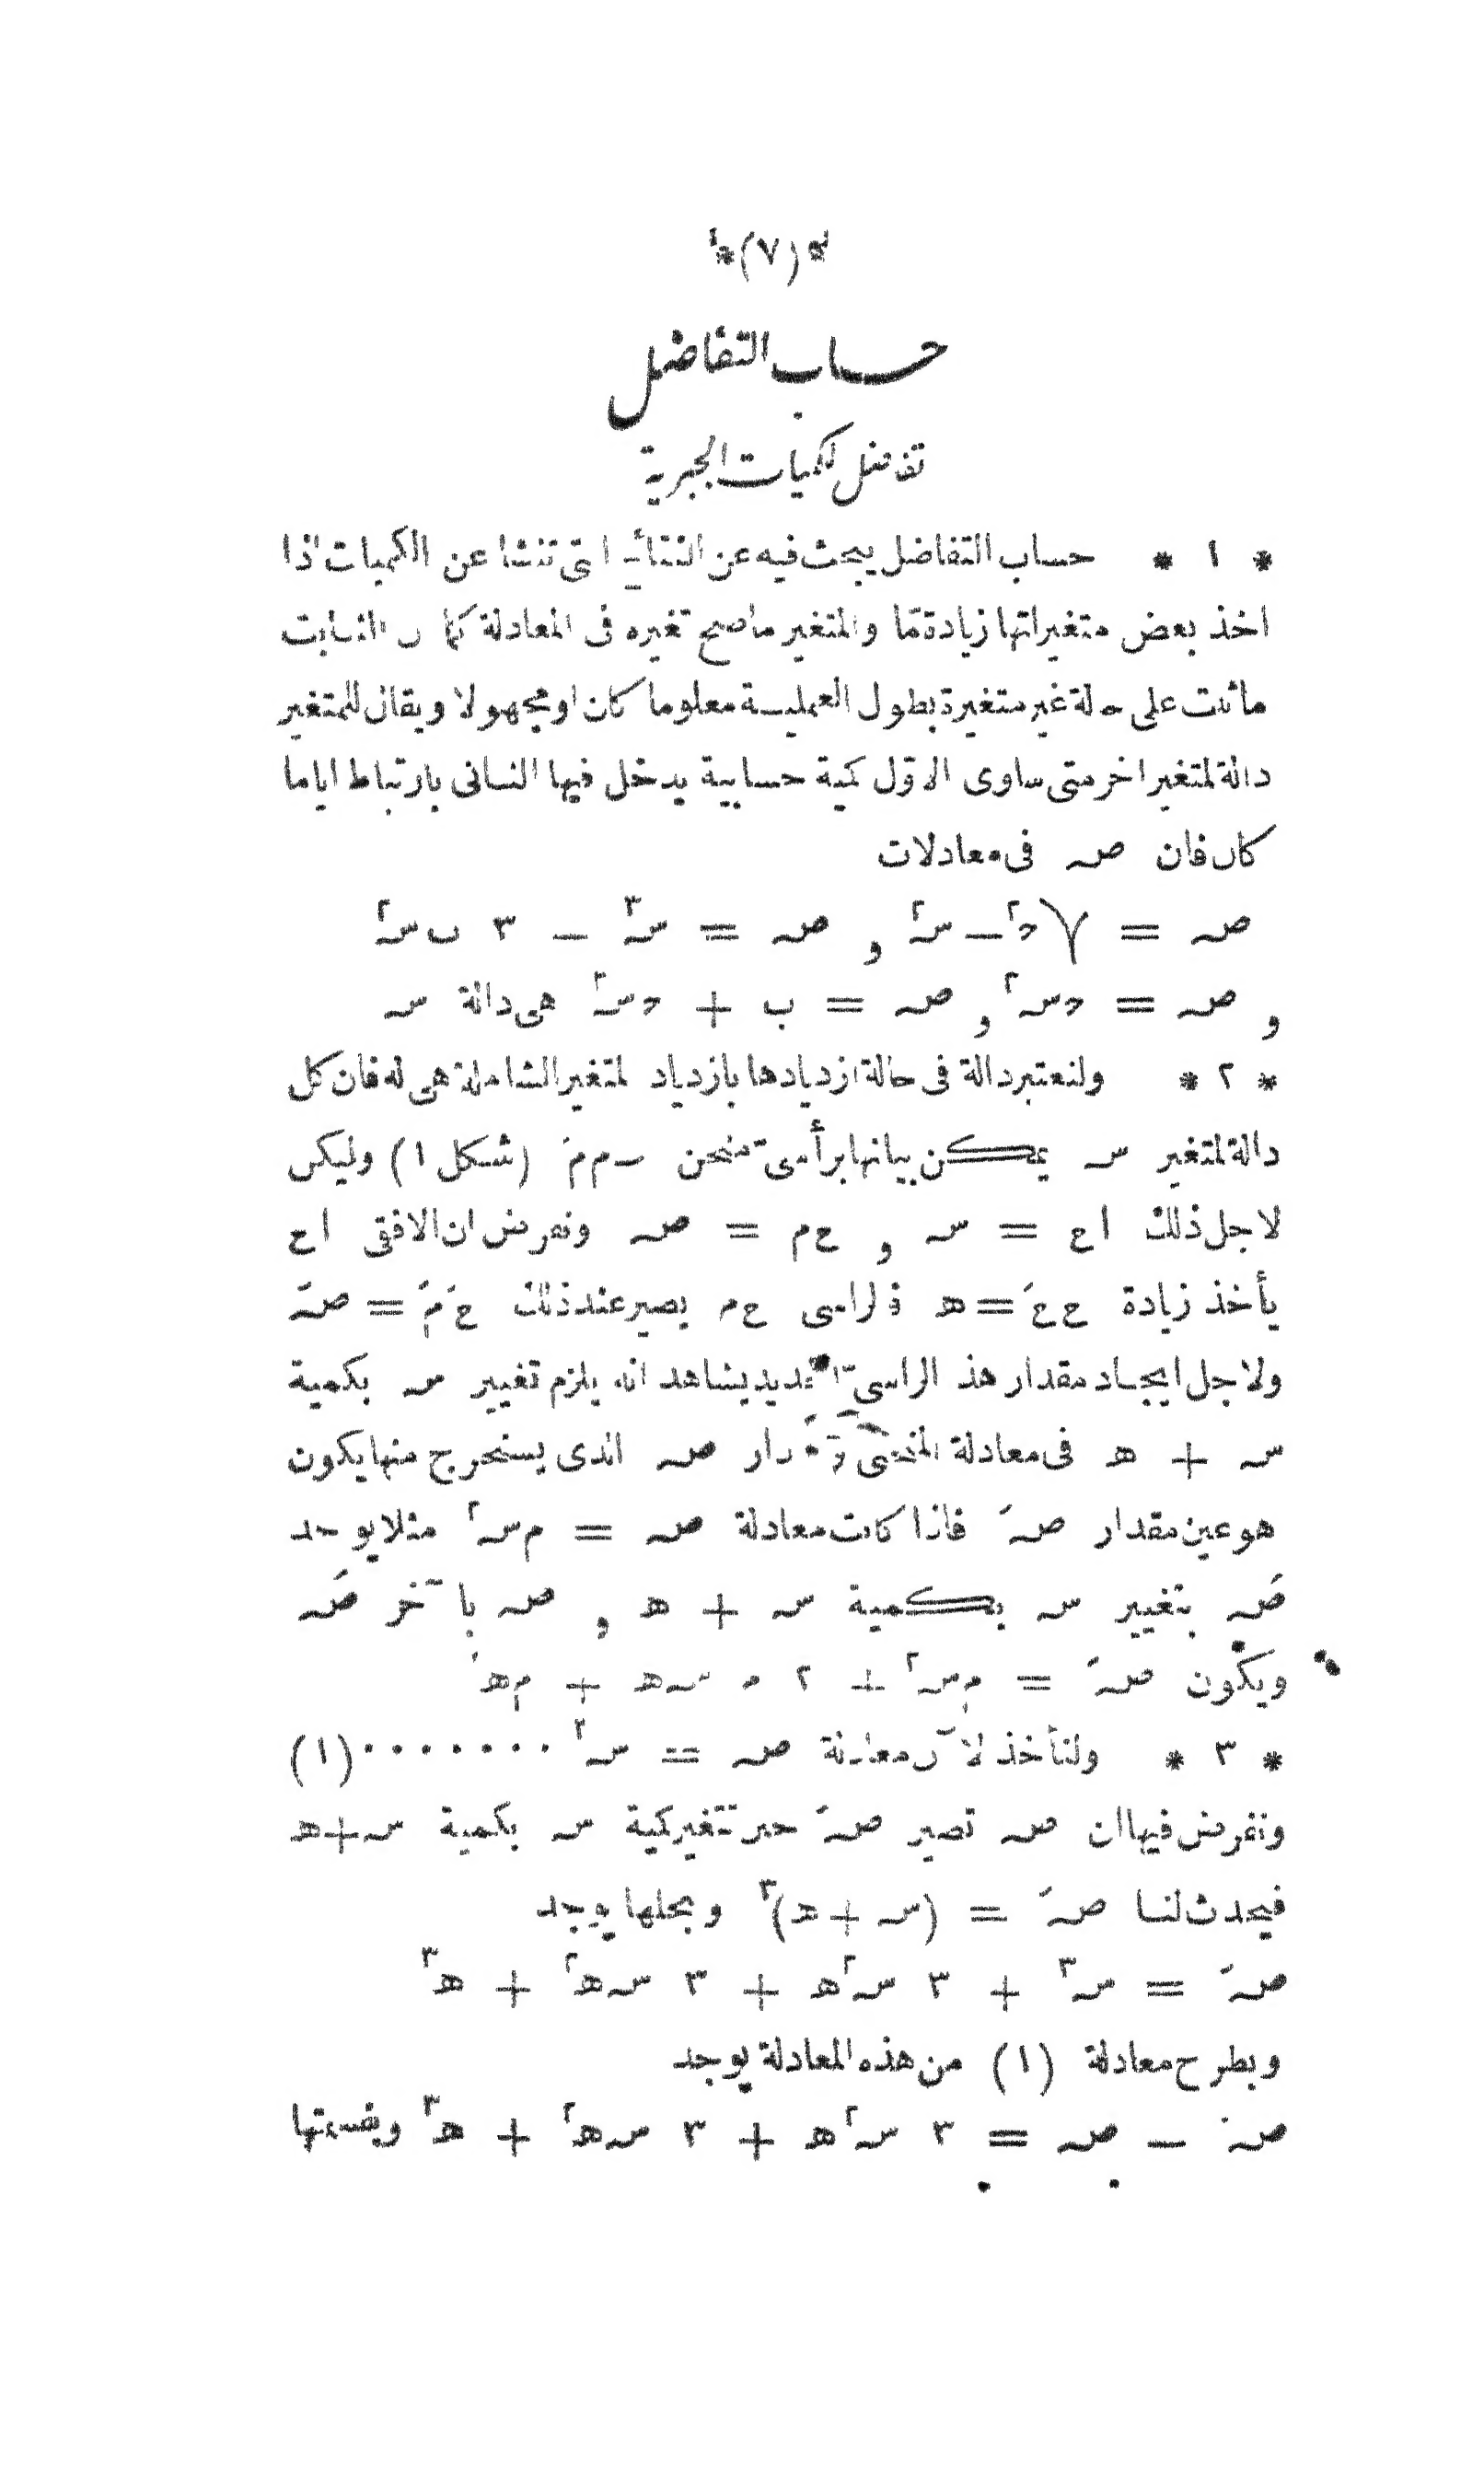 *(٧)*
حساب التفاضل
تفاضل الكميات الجبرية
* ١ * حساب التفاضل يبحث فيه عن النتائج التى تنشا عن الكميات اذا
اخذ بعض متغيراتها زيادة ما والمتغير ماصح تغيره فى المعادلة كما ان الثابت
ماثبت على حالة غير متغيرة بطول العملية معلوما كان او مجهولا ويقال للمتغير
دالة لمتغير اخر متى ساوى الاول كمية حسابية يدخل فيها الثانى بارتباط اياما
كان فان صـ فى معادلات
صـ = √حـ٢ – سـ٢ و صـ = سـ٣ – ٣ ب سـ٢
و صـ = حـ سـ٢ و صـ = ب + حـ سـ٢ هى دالة سـ
* ٢ * ولنعتبر دالة فى حالة ازديادها بازدياد المتغير الشاملة هى له فان كل
دالة لمتغير سـ يمكن بيانها برأسى منحن ب م مَ (شكل ١) وليكن
لاجل ذلك ا ع = سـ و ع م = صـ ونفرض ان الافقى ا ع
يأخذ زيادة ع عَ = هـ فالراسى ع م يصير عند ذلك عَ مَ = صـَ
ولاجل ايجاد مقدار هذا الراسى الجديد يشاهد انه يلزم تغيير سـ بكمية
سـ + هـ فى معادلة المنحنى ومقدار صـ الذى يستخرج منها يكون
هو عين مقدار صـَ فاذا كانت معادلة صـ = م سـ٢ مثلا يوجد
صـَ بتغيير سـ بكمية سـ + هـ و صـ بآخر صـَ
ويكون صـَ = م سـ٢ + ٢ م سـ هـ + م هـ٢
* ٣ * ولنأخذ الآن معادلة صـ = سـ٣ ·······(١)
ونفرض فيها ان صـ تصير صـَ حين تتغير كمية سـ بكمية سـ+هـ
فيحدث لنا صـَ = (سـ + هـ)٣ وبحلها يوجد
صـَ = سـ٣ + ٣ سـ٢هـ + ٣ سـ هـ٢ + هـ٣
وبطرح معادلة (١) من هذه المعادلة يوجد
صـَ – صـ = ٣ سـ٢هـ + ٣ سـ هـ٢ + هـ٣ وبقسمتها